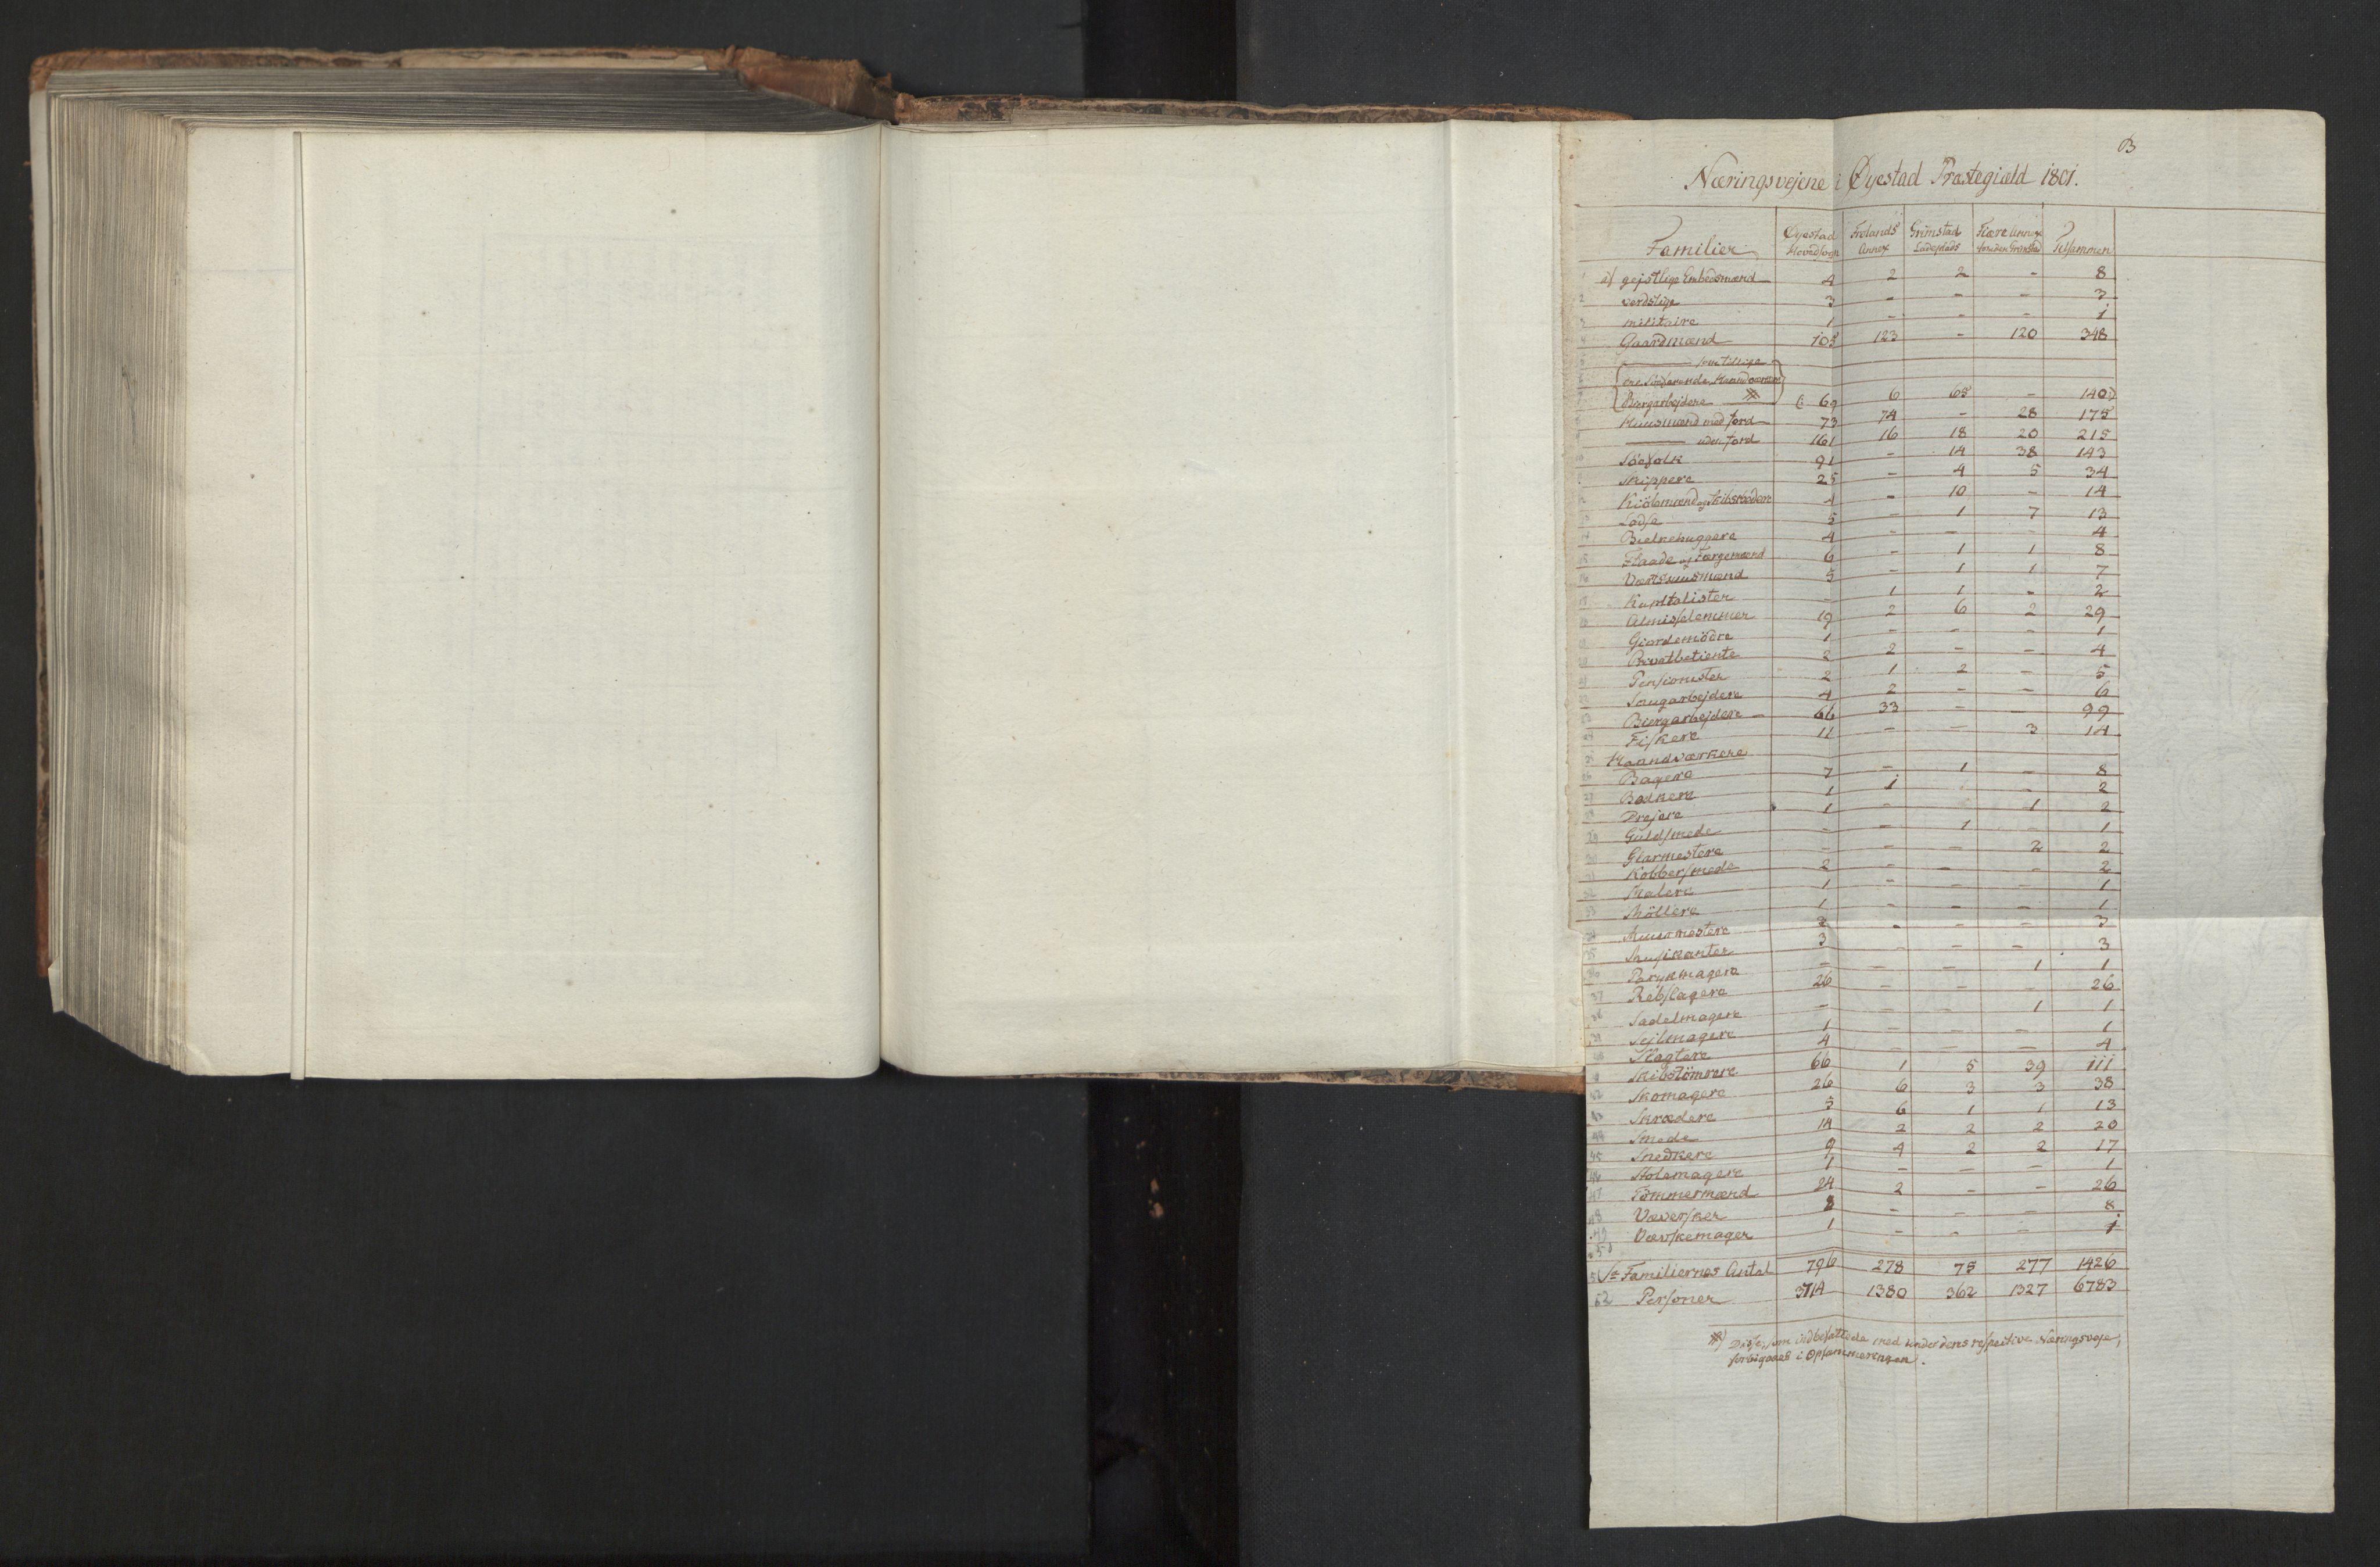 B
Næringsvejene i Øyestad Præstegiæld 1801.
Familier Øyestad Hovedsogn Frolands Annex Grimstad Ladeplads Fiære Annex foruden Grimstad Tilsammen
1 a) gejstlige Embedsmænd 4 2 2 - 8
2 verdslige 3 - - - 3
3 militaire 1 - - - 1
4 Gaardmænd 105 123 - 120 348
5 ——— som tillige
ere Søefarende, Haandværkere
Bergarbejdere 69 6 65 - 140
Huusmænd med Jord 73 74 - 28 175
——— uden Jord 161 16 18 20 215
Søefolk 91 - 14 38 143
Skippere 25 - 4 5 34
Kiöbmænd og Skibsrædere 4 - 10 - 14
Lodse 5 - 1 7 13
Bielkehuggere 4 - - - 4
Flaade og Færgemænd 6 - 1 1 8
Værtshuusmænd 5 - 1 1 7
Kapitalister - 1 1 - 2
Almisselemmer 19 2 6 2 29
Giordemödre 1 - - - 1
Privatbetiente 2 2 - - 4
Pensionister 2 1 2 - 5
Saugarbejdere 4 2 - - 6
Biergarbejdere 66 33 - - 99
Fiskere 11 - - 3 14
Haandværkere
Bagere 7 - 1 - 8
Bødkere 1 1 - - 2
Drejere 1 - - 1 2
29 Guldsmede - - 1 - 1
30 Glarmestere - - - 2 2
31 Kobbersmede 2 - - - 2
32 Malere 1 - - - 1
33 Möllere 1 - - - 1
34 Muurmestere 3 - - - 3
35 Musikanter 3 - - - 3
36 Parykmagere - - - 1 1
37 Rebslagere 26 - - - 26
38 Sadelmagere - - - 1 1
39 Sejlmagere 1 - - - 1
40 Slagtere 4 - - - 4
41 Skibstömrere 66 1 5 39 111
42 Skomagere 26 6 3 3 38
43 Skrædere 5 6 1 1 13
44 Smede 14 2 2 2 20
45 Snedkere 9 4 2 2 17
46 Stolemagere 1 - - - 1
47 Tömmermænd 24 2 - - 26
48 Væversker 8 - - - 8
49 Vævskemager 1 - - - 1
50
51 Sa Familiernes Antal 796 278 75 277 1426
52 Personer 3714 1380 362 1327 6783
Disse, som indbefattede med under deres respective Næringsveje,
forbigaaes i Opsummeringen.